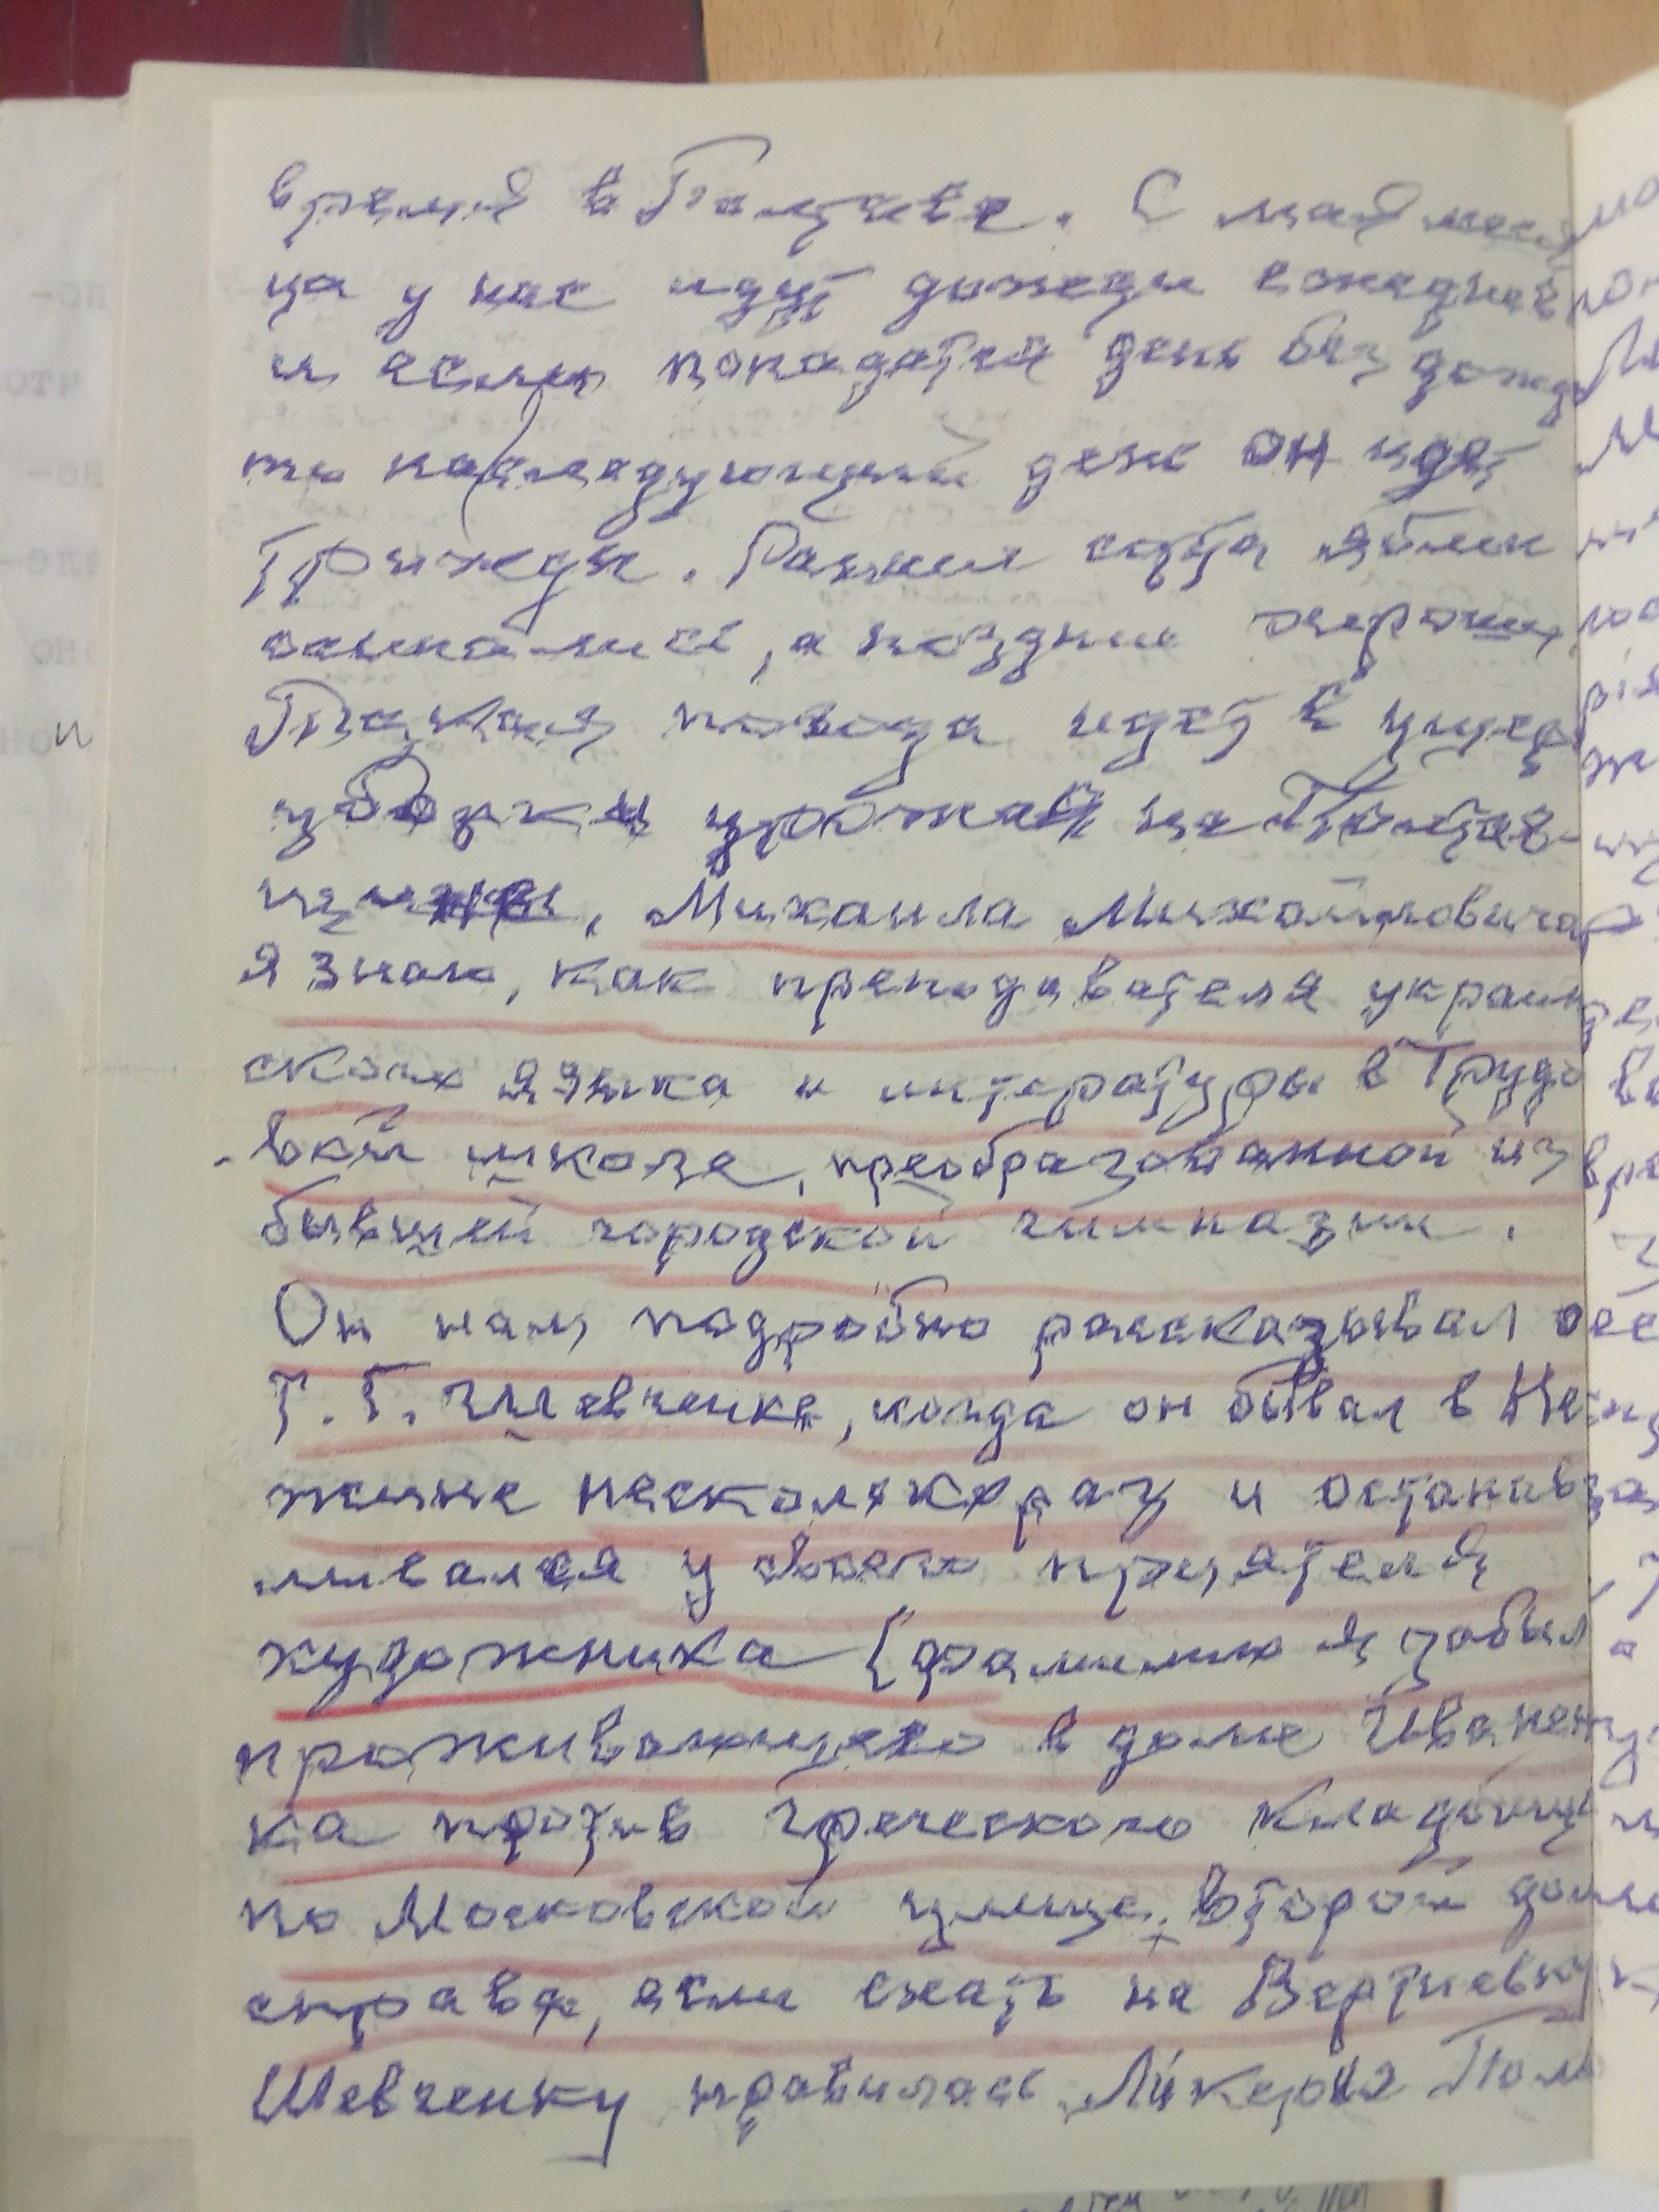 время в Полтаве. С мая меся
ца у нас идут дожди ежеднев
и если попадется день без дожд
то на следующий день он идет
трижды. Ранние сорта яблок
осыпались, а поздние
Такая погода идет в ущерб
уборки урожая на Полтав-
щине. Михаила Михайловича
я знаю, как преподавателя украин
ского языка и литературы в Трудо
вой школе, преобразованной из
бывшей городской гимназии.
Он нам подробно рассказывал о
Т. Г. Шевченке, когда он бывал в Не
жине несколько раз и останав
ливался у своего приятеля
художника (фамилию я забыл
проживающего в доме Иванен
ка против греческого кладбищ
по Московской улице. Второй дом
справа, если ехать на Вертиевку
Шевченку нравилась Ликерия Пол